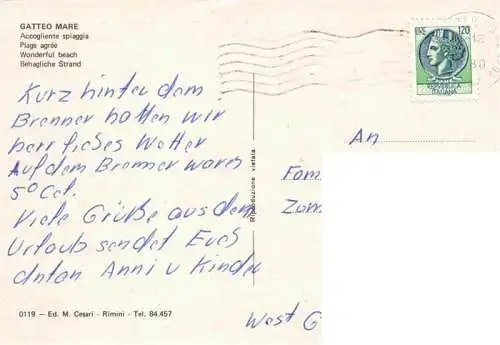 GATTEO MARE
Accogliente spiaggia
Plage agrée
Wonderful beach
Behagliche Strand
LIRE 120
Kurz hinter dem
Brenner hatten wir
herrliches Wetter
Auf dem Brenner waren
5° Cel.
Viele Grüße aus dem
Urlaub sendet Euch
Anton Anni u Kinder
Riproduzione vietata
An
Fam
Zum
West G
0119 - Ed. M. Cesari - Rimini - Tel. 84.457